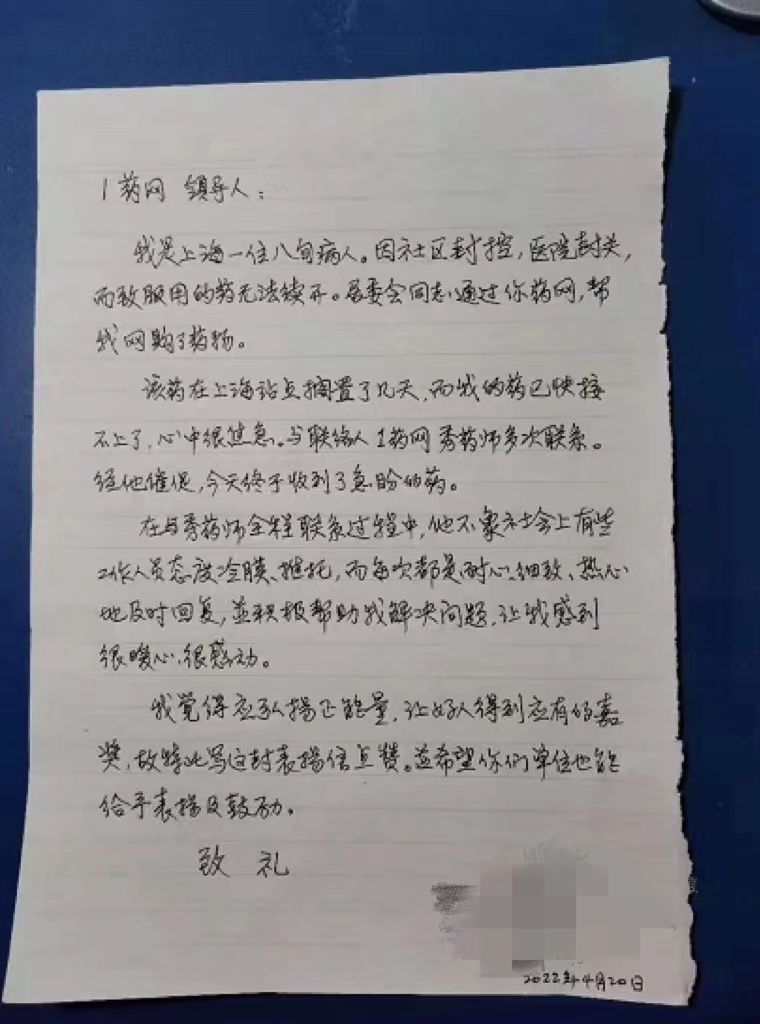 1药网 领导人：
我是上海一住八旬病人。因社区封控，医院封关，
而致服用的药无法续开。居委会同志通过你药网，帮
我网购了药物。
该药在上海站点搁置了几天，而我的药已快接
不上了，心中很焦急。与联络人1药网秀药师多次联系。
经他催促，今天终于收到了急盼的药。
在与秀药师全程联系过程中，他不象社会上有些
工作人员态度冷膜、推托，而每次都是耐心、细致、热心
地及时回复，并积极帮助我解决问题，让我感到
很暖心、很感动。
我觉得应弘扬正能量，让好人得到应有的嘉
奖，故特此写这封表扬信点赞。並希望你们单位也能
给予表扬及鼓励。
致 礼
2022年4月20日